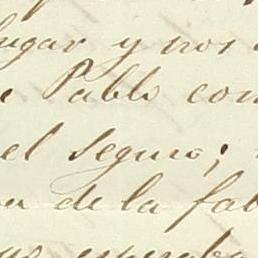 lugar y nos
Pablo com
el seguro;
de la fab